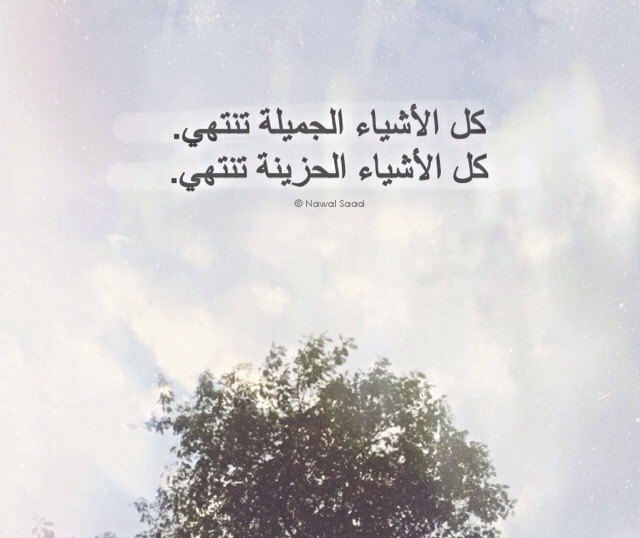 كل الأشياء الجميلة تنتهي.
كل الأشياء الحزينة تنتهي.
© Nawal Saad